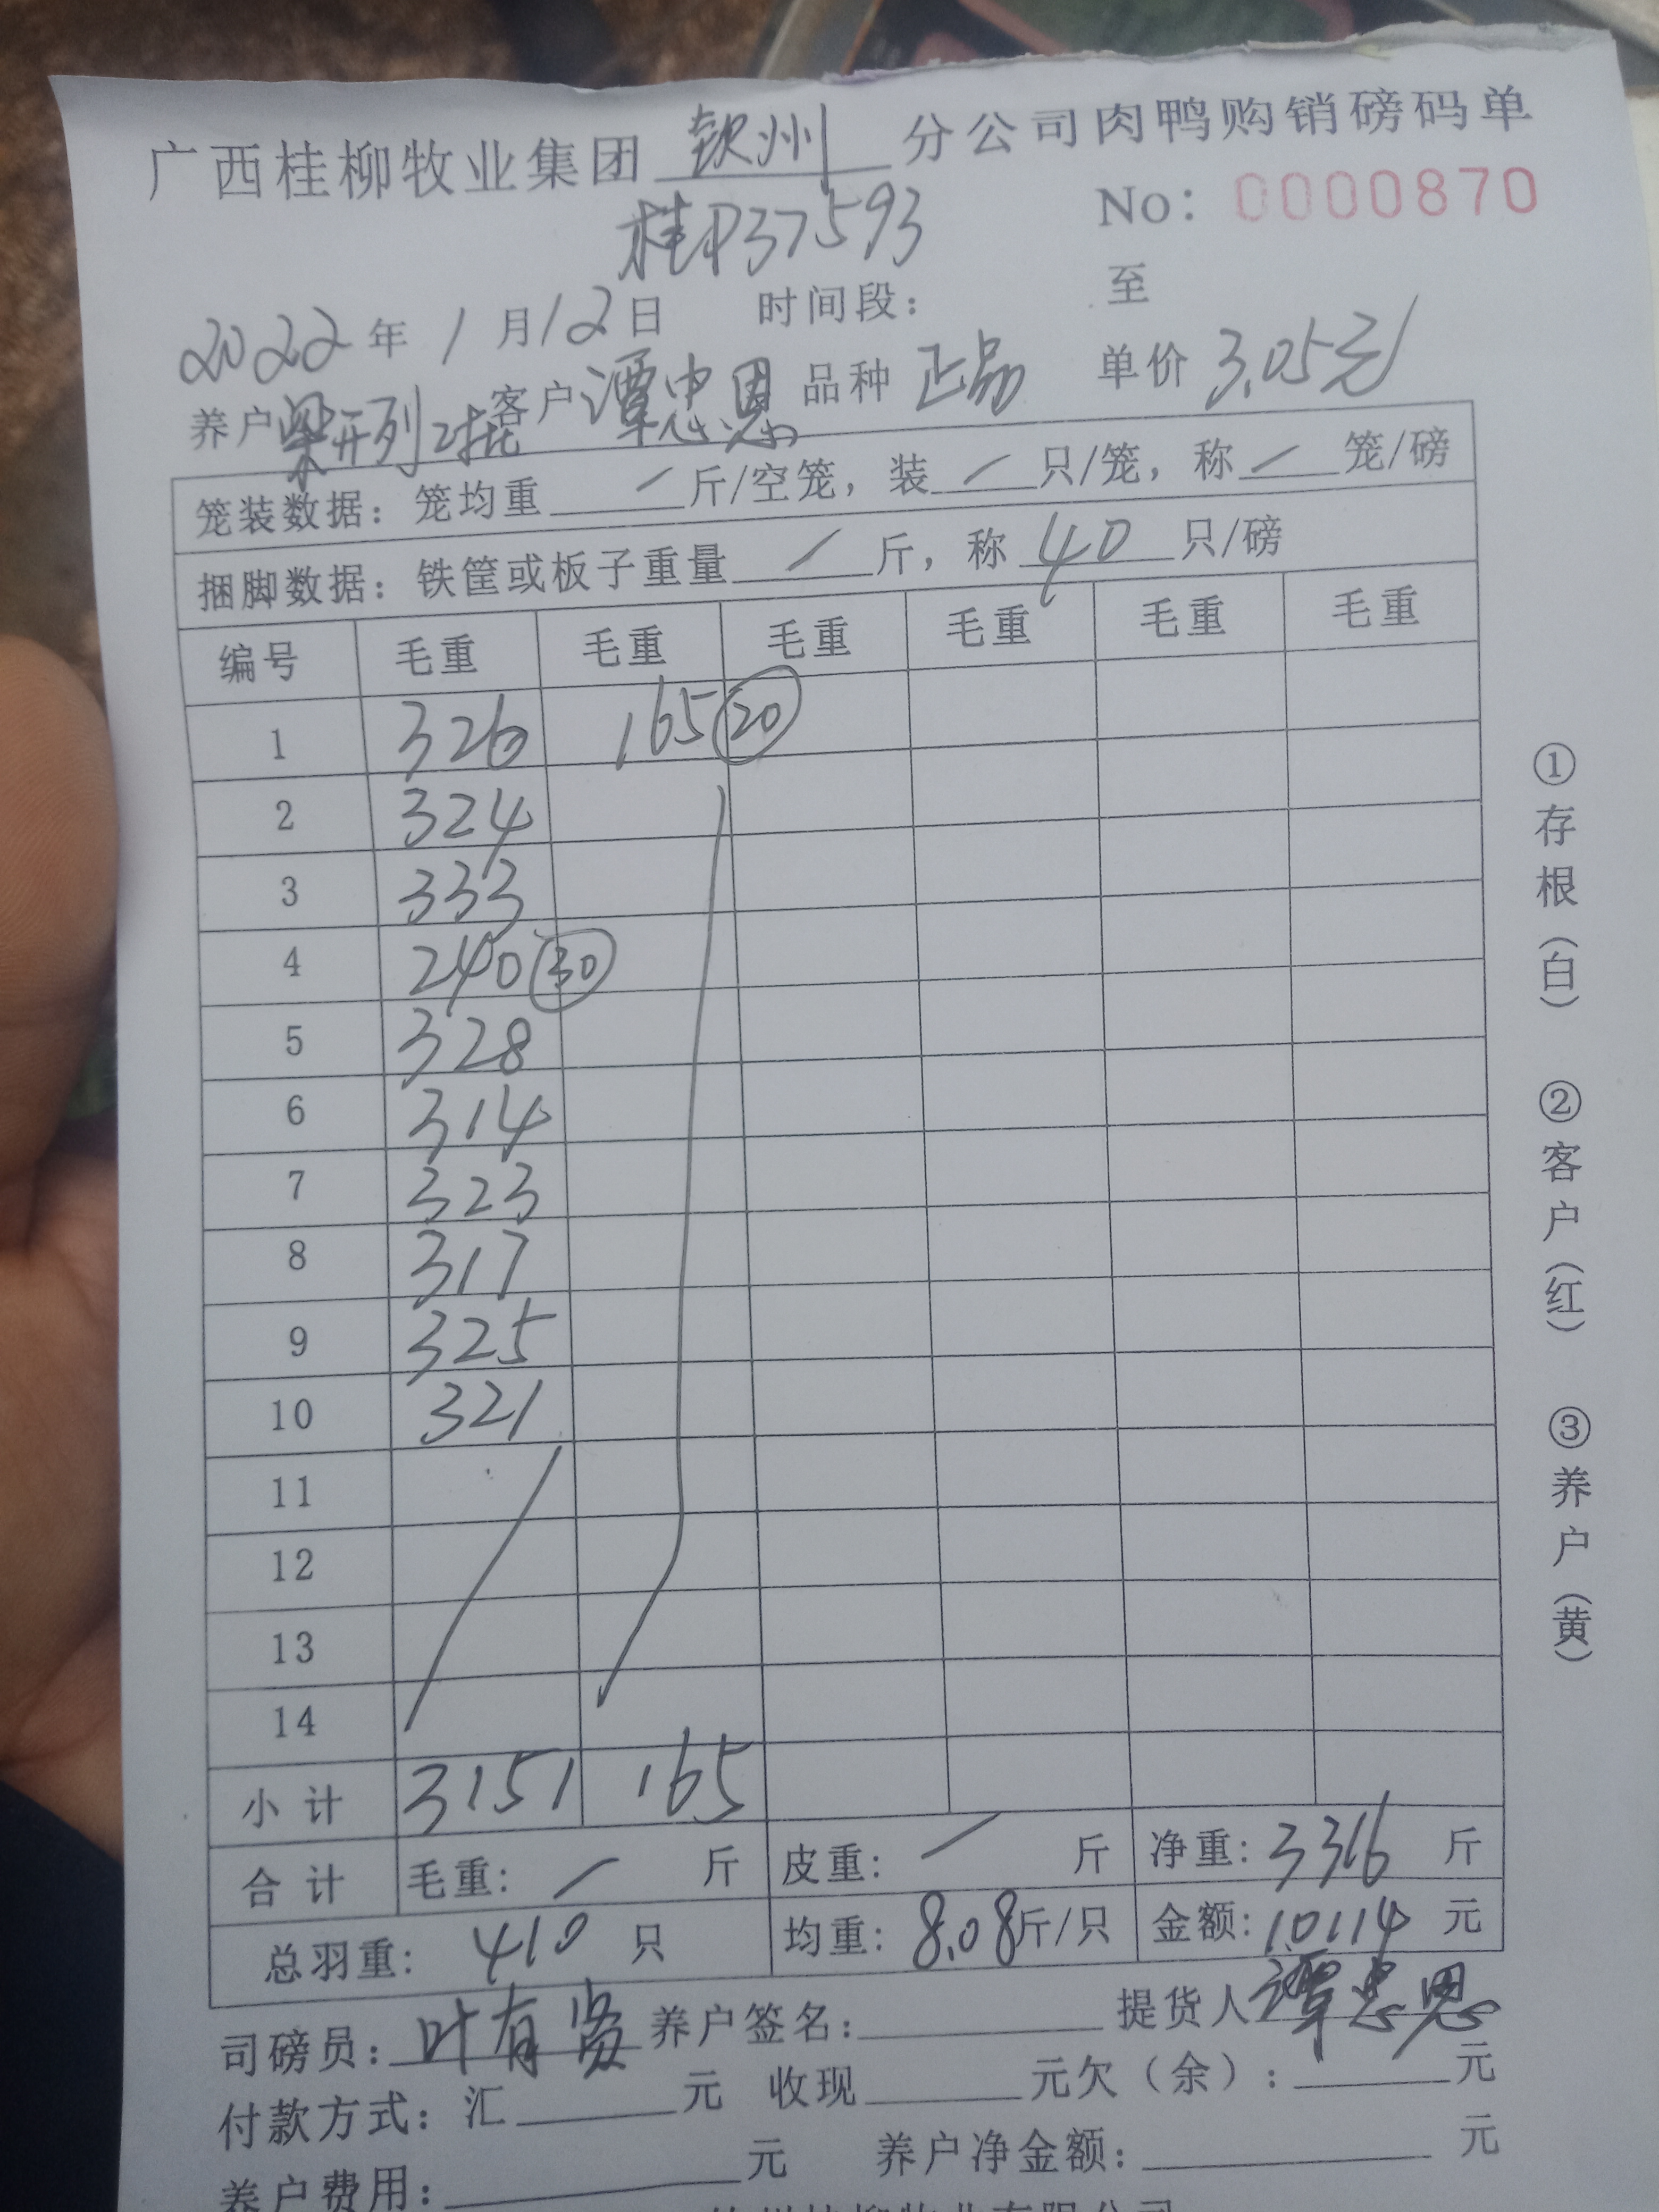 广西桂柳牧业集团 钦州 分公司肉鸭购销磅码单
桂P37593 No: 0000870
2022年1月12日 时间段: 至
养户 梁开列2批 客户 谭忠恩 品种 正品 单价 3.05元/
笼装数据: 笼均重 / 斤/空笼, 装 / 只/笼, 称 / 笼/磅
捆脚数据: 铁筐或板子重量 / 斤, 称 40 只/磅
编号 毛重 毛重 毛重 毛重 毛重 毛重
1 326 165 20
2 324
3 333
4 240 30
5 328
6 314
7 323
8 317
9 325
10 321
11
12
13
14
小计 3151 165
合计 毛重: / 斤 皮重: / 斤 净重: 3316 斤
总羽重: 410 只 均重: 8.08斤/只 金额: 10114 元
司磅员: 叶有贤 养户签名: 提货人 谭忠恩
付款方式: 汇 元 收现 元欠(余): 元
养户费用: 元 养户净金额: 元
①存根(白) ②客户(红) ③养户(黄)